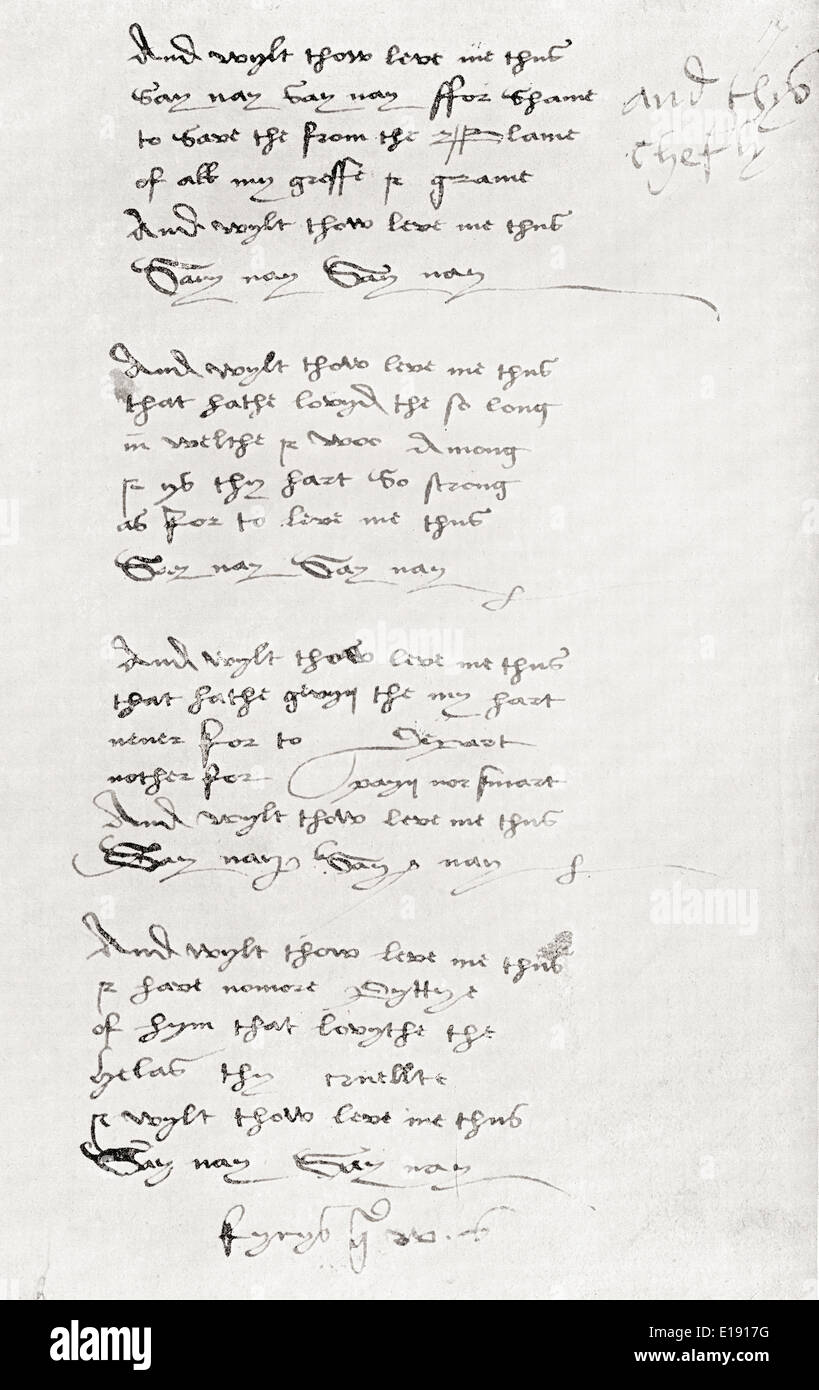 And wylt thow leve me thus
Say nay Say nay ffor Shame
and thys
to Save the from the Blame
chefly
of all my greffe & grame
And wylt thow leve me thus
Say nay Say nay
And wylt thow leve me thus
that hathe lovyd the so long
in welthe & woo Among
& ys thy hart So strong
as for to leve me thus
Say nay Say nay
And wylt thow leve me thus
that hathe gevyn the my hart
never for to Depart
nother for payn nor smart
And wylt thow leve me thus
Say nay Say nay
And wylt thow leve me thus
& have nomore Pyttye
of hym that lovythe the
helas thy cruellte
& wylt thow leve me thus
Say nay Say nay
fynys
alamy
Image ID: E1917G
www.alamy.com